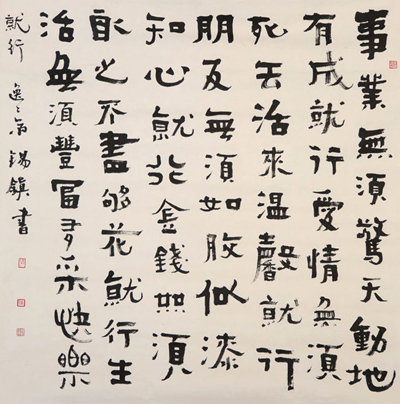 事業無須驚天動地
有成就行愛情無須
死去活來溫馨就行
朋友無須如胶似漆
知心就行金錢如須
取之不盡够花就行生
活無須豐富多采快樂
就行 錫鎮書